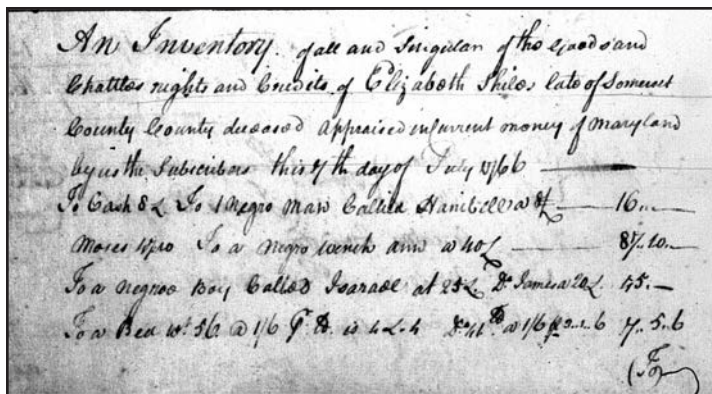 An Inventory of all and Singular of the Goods and
Chattles rights and Credits of Elizabeth Shiles late of Somerset
County County deceased Appraised in Current money of Maryland
by us the Subscribers this 7th day of July 1766
To Cash 8 L To 1 Negro Man Called Hanibell a 8 L 16
Moses To a negro wench ann a 40 L 87.10
To a Negroe Boy Called Isarael at 25 L Do James a 20 L
To a Bed wt. 56 @ 1/6 is 4 L 4 @ 1/6 7.5.6
(To